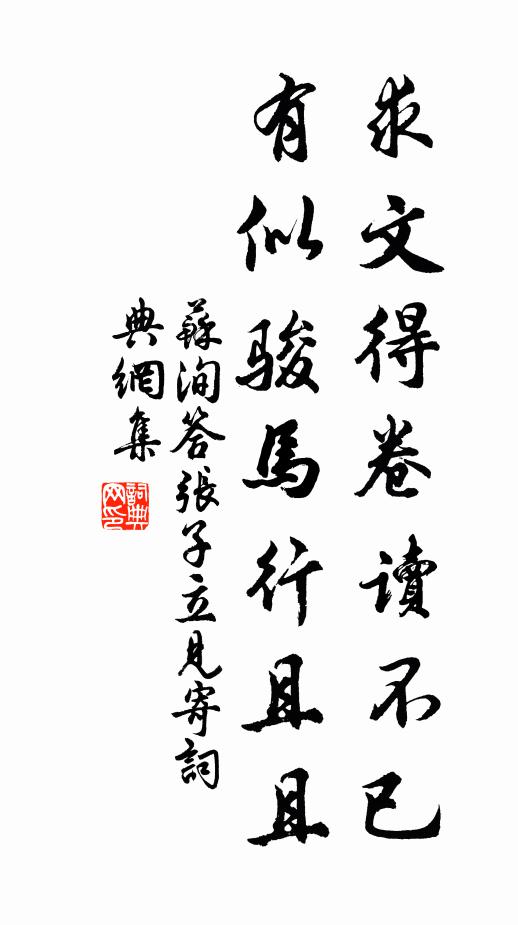 求文得卷讀不已
有似駿馬行且且
蘇洵答張子立見寄詞
典網集
詞典
网印